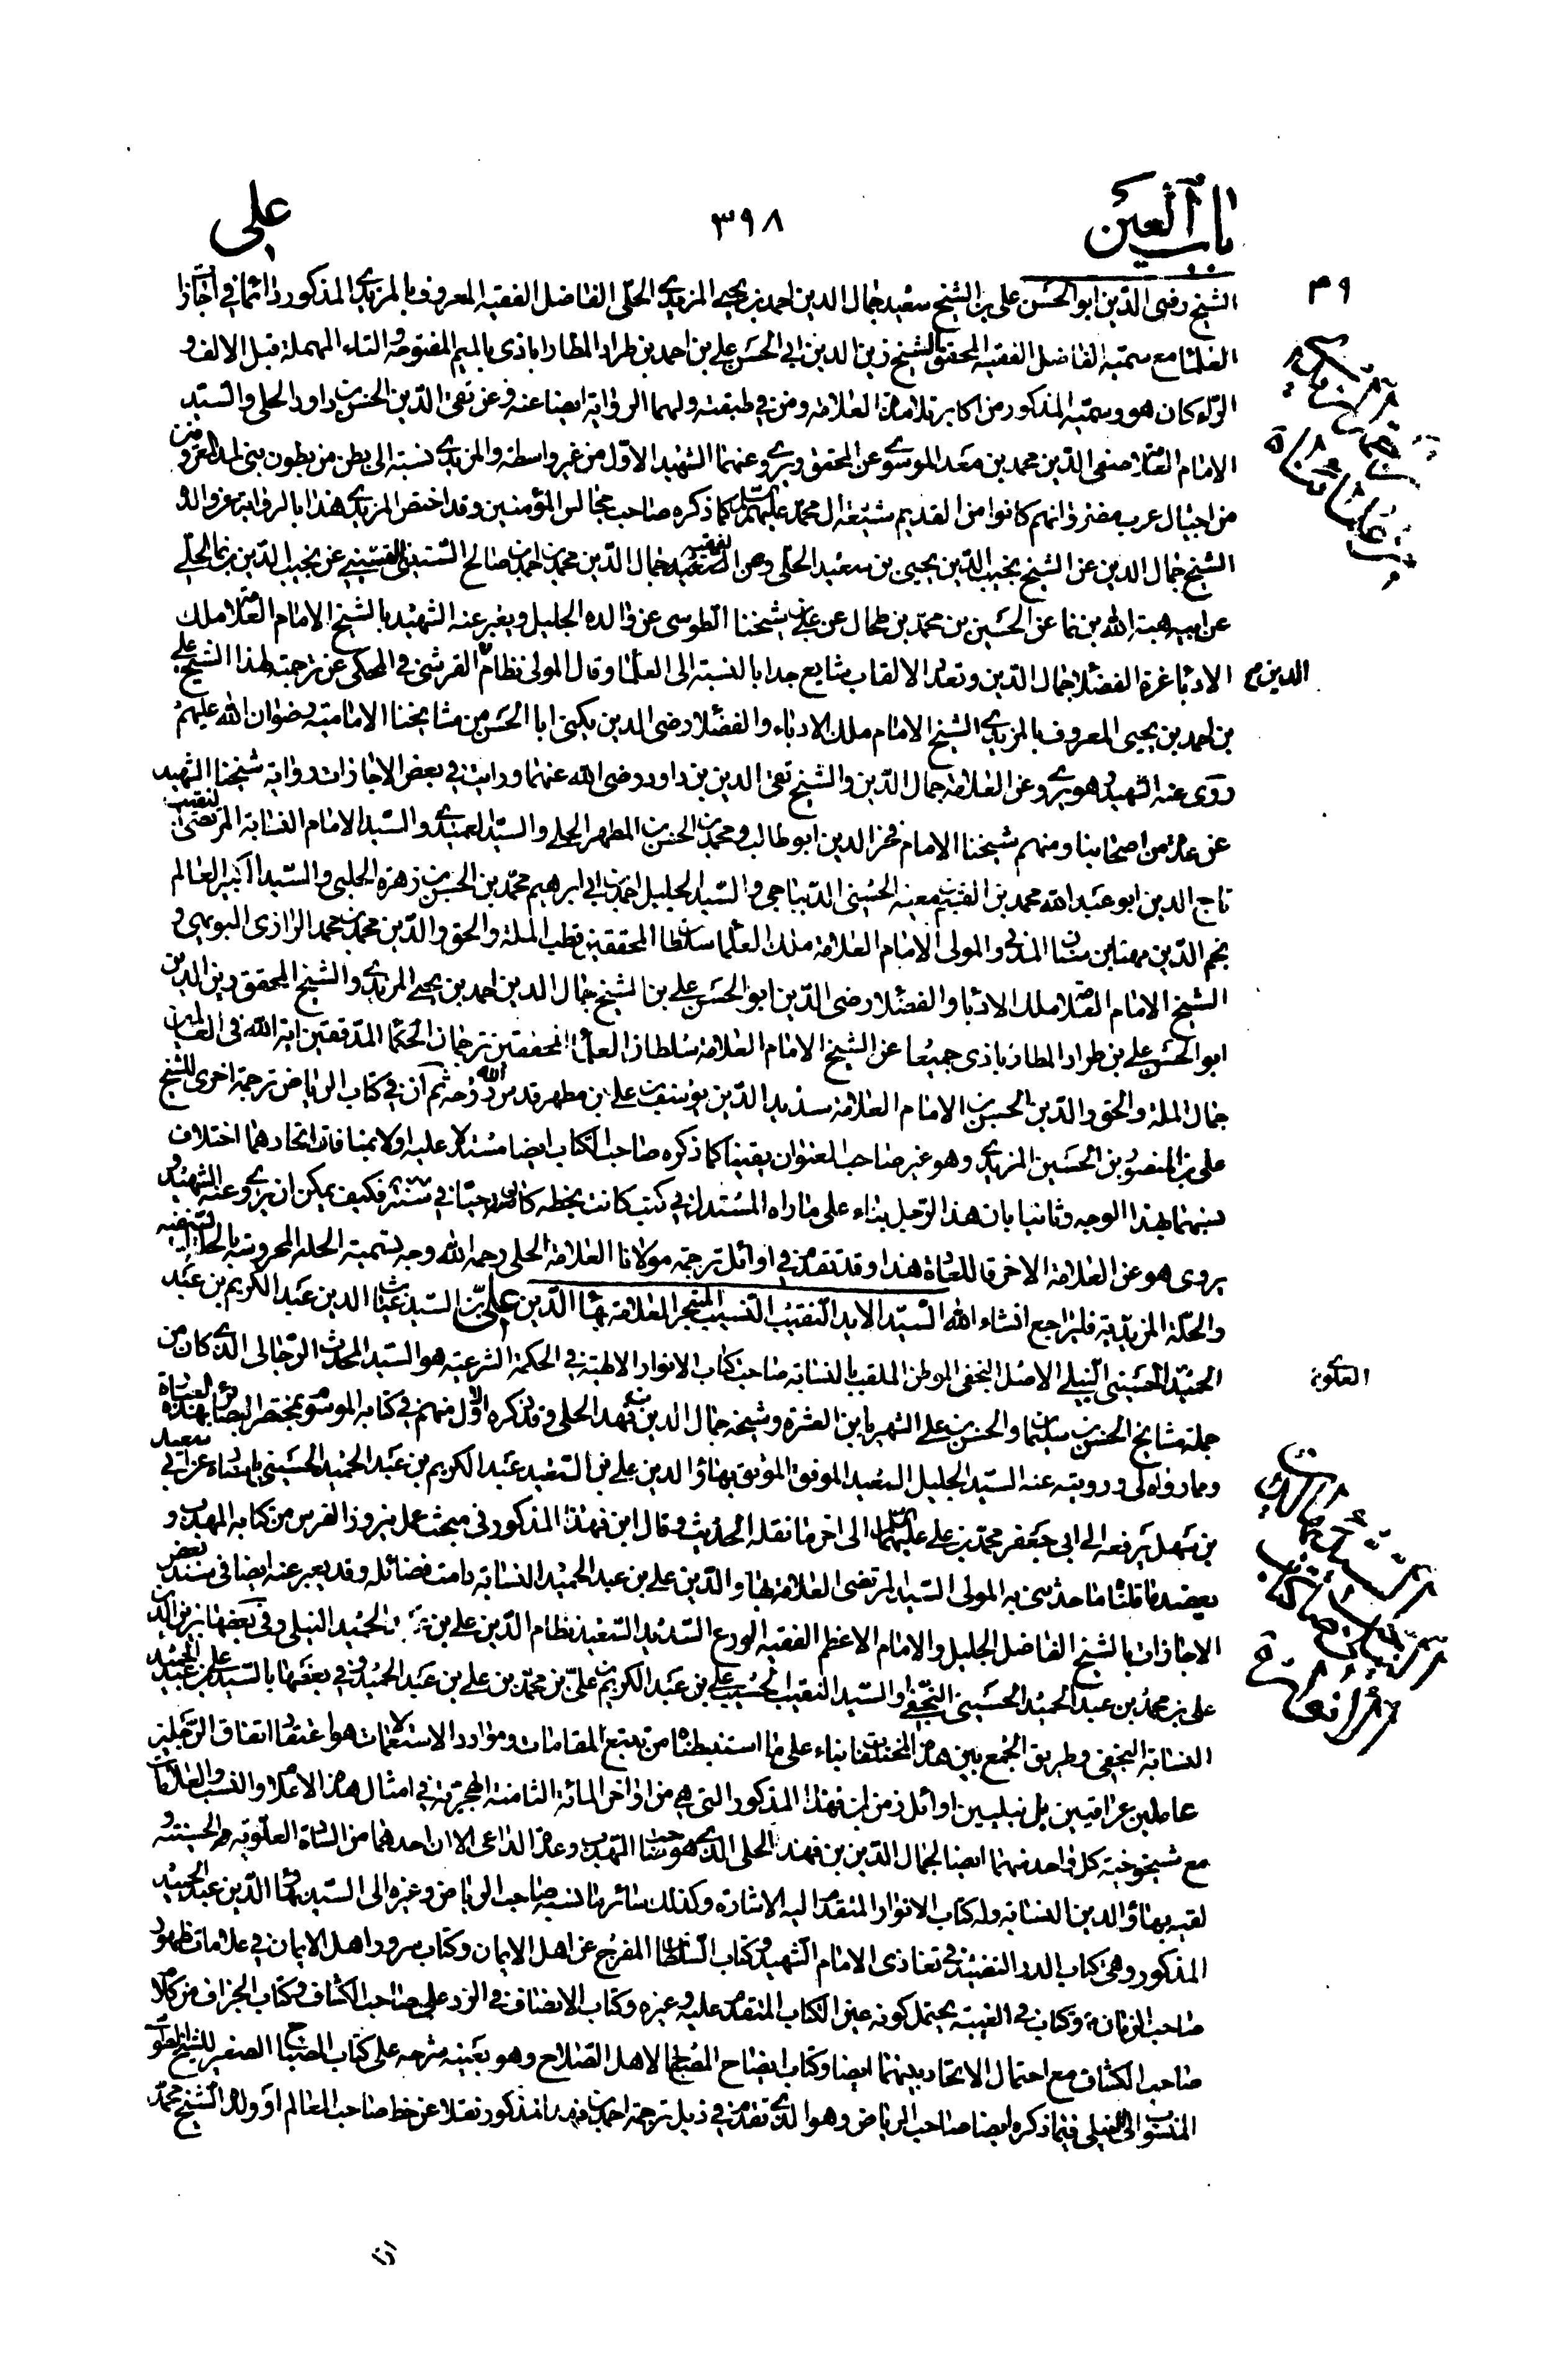 باب العين
٣٩٨
علي
الشيخ رضى الدين ابو الحسن على بن الشيخ سعيد جمال الدين احمد بن يحيى المزيدى الحلى الفاضل الفقيه المعروف بالمزيدى المذكور دائما فى اجازات
العلماء مع سميه الفاضل الفقيه المحقق الشيخ زين الدين ابى الحسن على بن احمد بن طراد المطارابادى بالميم المفتوحة و الطاء المهملة قبل الالف و
الراء كان هو و سميه المذكور من اكابر تلامذة العلامة و من فى طبقته و لهما الرواية ايضا عنه و عن تقى الدين الحسن بن داود الحلى و السيد
الامام العلامة صفى الدين محمد بن معد الموسوى عن المحقق و يروى عنهما الشهيد الاول من غير واسطة و المزيدى نسبة الى بطن من بطون بنى اسد المعروفين
من اجيال عرب مضر و انهم كانوا من القديم شيعة ال محمد عليهم السلم كما ذكره صاحب مجالس المؤمنين و قد اختص المزيدى هذا بالرواية عن والده
الشيخ جمال الدين عن الشيخ نجيب الدين يحيى بن سعيد الحلى و عن الفقيه السعيد جمال الدين محمد بن احمد بن صالح السيبى القسينى عن نجيب الدين بن نما الحلى
عن ابيه هبة الله بن نما عن الحسين بن محمد بن طحال عن ابى على بن شيخنا الطوسى عن والده الجليل و يعبر عنه الشهيد بالشيخ الامام العلامة ملك
الادباء غرة الفضلاء جمال الدين و تعدد الالقاب شايع جدا بالنسبة الى العلماء و قال المولى نظام القرشى فى المحكى عن ترجمته لهذا الشيخ على
الدين م
بن احمد بن يحيى المعروف بالمزيدى الشيخ الامام ملك الادباء و الفضلاء رضى الدين يكنى ابا الحسن من مشايخنا الامامية رضوان الله عليهم
روى عنه الشهيد و هو يروى عن العلامة جمال الدين و الشيخ تقى الدين بن داود رضى الله عنهما و رايت فى بعض الاجازات رواية شيخنا الشهيد
عن عدة من اصحابنا و منهم شيخنا الامام فخر الدين ابو طالب محمد بن الحسن بن المطهر الحلى و السيد العميدى و السيد الامام النسابة المرتضى النقيب
تاج الدين ابو عبد الله محمد بن القسم بن معية الحسينى الديباجى و السيد الجليل احمد بن ابى ابرهيم محمد بن الحسن بن زهرة الحلبى و السيد الكبير العالم
نجم الدين مهنا بن سنان المدنى و المولى الامام العلامة ملك العلماء سلطان المحققين قطب الملة و الحق و الدين محمد بن محمد الرازى البويهى و
الشيخ الامام العلامة ملك الادباء و الفضلاء رضى الدين ابو الحسن على بن الشيخ جمال الدين احمد بن يحيى المزيدى و الشيخ المحقق زين الدين
ابو الحسن على بن طراد المطارابادى جميعا عن الشيخ الامام العلامة سلطان العلماء المحققين ترجمان الحكماء المدققين اية الله فى العالمين
جمال الملة و الحق و الدين الحسن بن الامام العلامة سديد الدين يوسف بن على بن مطهر قدس الله روحه ثم ان فى كتاب الرياض ترجمة اخرى للشيخ
على بن المنصور بن الحسين المزيدى و هو غير صاحب العنوان يقينا كما ذكره صاحب الكتاب ايضا مستدلا عليه اولا بمنافاة اتحادهما اختلاف
نسبهما بهذا الوجه و ثانيا بان هذا الرجل بناء على ما راه المستدل فى كتب كانت بخطه كان حيا فى سنة فكيف يمكن ان يروى عنه الشهيد و
يروى هو عن العلامة الاخر فالله هذا و قد تقدم فى اوائل ترجمة مولانا العلامة الحلى رحمه الله وجه تسمية الحلة المحروسة بالحلة السيفية
و الحلة المزيدية فليراجع انشاء الله السيد الايد النقيب النسيب المتبحر العلامة بهاء الدين على بن السيد غياث الدين عبد الكريم بن عبد
الحميد الحسينى النيلى الاصل النجفى الموطن الملقب بالنسابة صاحب كتاب الانوار الالهية فى الحكمة الشرعية هو السيد المحدث الرجالى الذى كان من
جملة مشايخ الحسن بن سليمان و الحسن بن على الشهير بابن العشرة و شيخه جمال الدين بن فهد الحلى و قد ذكره الاول منهم فى كتابه الموسوم بمختصر البصائر بهذه العبارة
و مما رواه لى و رويته عنه السيد الجليل السعيد الموفق الموثق بهاء الدين على بن السعيد عبد الكريم بن عبد الحميد الحسينى باسناده عن ابى سعيد
بن سهل يرفعه الى ابى جعفر محمد بن على عليهما السلم الى اخر ما نقله الحديث و قال ابن فهد هذا المذكور فى مبحث عمل نيروز الفرس من كتابه المهذب و
يعضد ما قلناه ما حدثنى به المولى السيد المرتضى العلامة بهاء الدين على بن عبد الحميد النسابة دامت فضائله و قد يعبر عنه ايضا فى سند بعض
الاجازات بالشيخ الفاضل الجليل و الامام الاعظم الفقيه الورع السديد السعيد نظام الدين على بن عبد الحميد النيلى و فى بعضها بزين الدين
على بن محمد بن عبد الحميد الحسينى النجفى و السيد النقيب الحسيب على بن عبد الكريم بن على بن محمد بن على بن عبد الحميد و فى بعضها بالسيد على بن عبد الحميد
النسابة النجفى و طريق الجمع بين هذه المختلفات بناء على ما استنبطناه من تتبع المقامات و موارد الاستعمالات هو اعتقاد اتفاق الرجلين
عاملين عراقيين بل نيليين اوائل زمن ابن فهد المذكور التى هى من اواخر المائة الثامنة الهجرية فى امثال هذه الاعلام و النسب و العلامات
مع شيخوخية كل واحد منهما ايضا لجمال الدين بن فهد الحلى الذى هو صاحب المهذب و عدة الداعى الا ان احدهما من السادة العلوية الحسينية و
لقبه بهاء الدين النسابة و له كتاب الانوار المتقدم اليه الاشارة و كذلك سائر ما نسبه صاحب الرياض و غيره الى السيد بهاء الدين عبد الحميد
المذكور و هى كتاب الدر النضيد فى تعازى الامام الشهيد و كتاب السلطان المفرج عن اهل الايمان و كتاب سرور اهل الايمان فى علامات ظهور
صاحب الزمان و كتاب فى الغيبة يحتمل كونه عين الكتاب المتقدم عليه و غيره و كتاب الانصاف فى الرد على صاحب الكشاف و كتاب الجزاف من كلام
صاحب الكشاف مع احتمال الاتحاد بينهما ايضا و كتاب ايضاح المصباح لاهل الصلاح و هو بعينه شرحه على كتاب المصباح الصغير للشيخ الطوسى
المنسوب الى النيلى فيما ذكره ايضا صاحب الرياض و هو الذى تقدم فى ذيل ترجمة احمد بن فهد المذكور نقلا عن خط صاحب المعالم او ولده الشيخ محمد